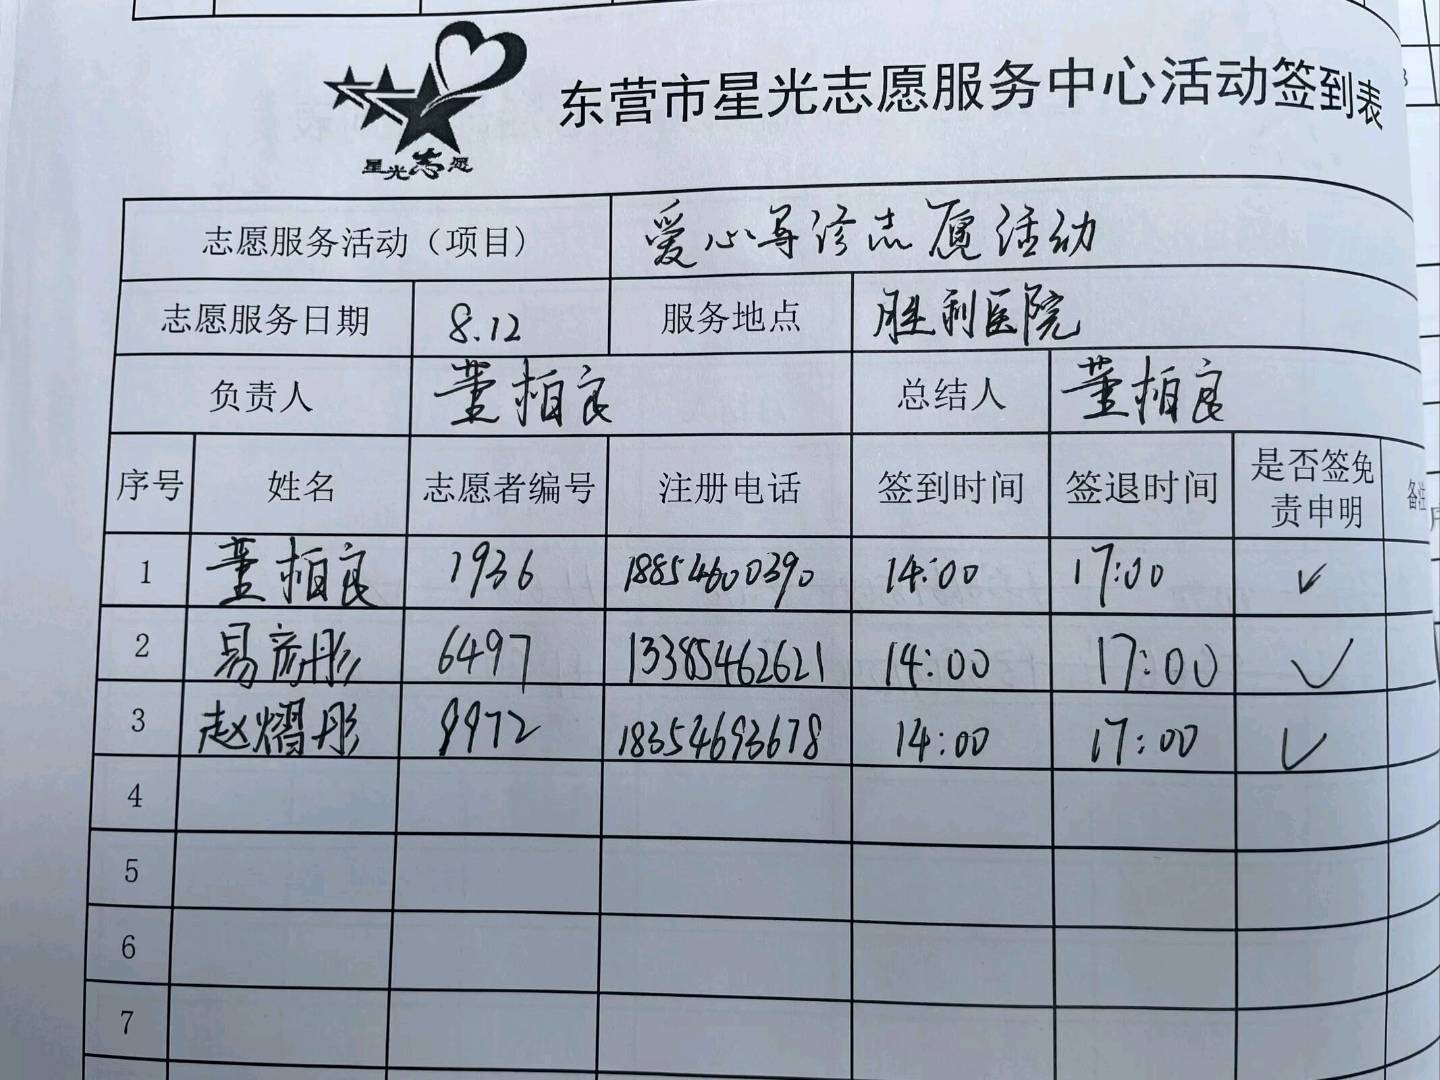 星光志愿
东营市星光志愿服务中心活动签到表
志愿服务活动（项目） 爱心导诊志愿活动
志愿服务日期 8.12 服务地点 胜利医院
负责人 董柏良 总结人 董柏良
序号 姓名 志愿者编号 注册电话 签到时间 签退时间 是否签免责申明 备注
1 董柏良 1936 18854600390 14:00 17:00 ✓
2 易彦彤 6497 13385462621 14:00 17:00 ✓
3 赵熠彤 9972 18354693678 14:00 17:00 ✓
4
5
6
7